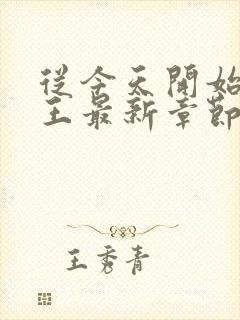 從今天開始
王最新章節
王秀青